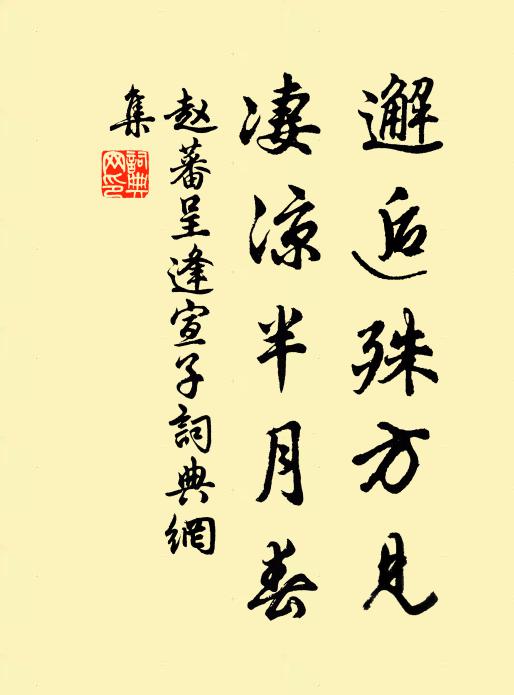 邂逅殊方見
凄凉半月春
赵蕃呈逢宣子詞典網
集
詞典网印